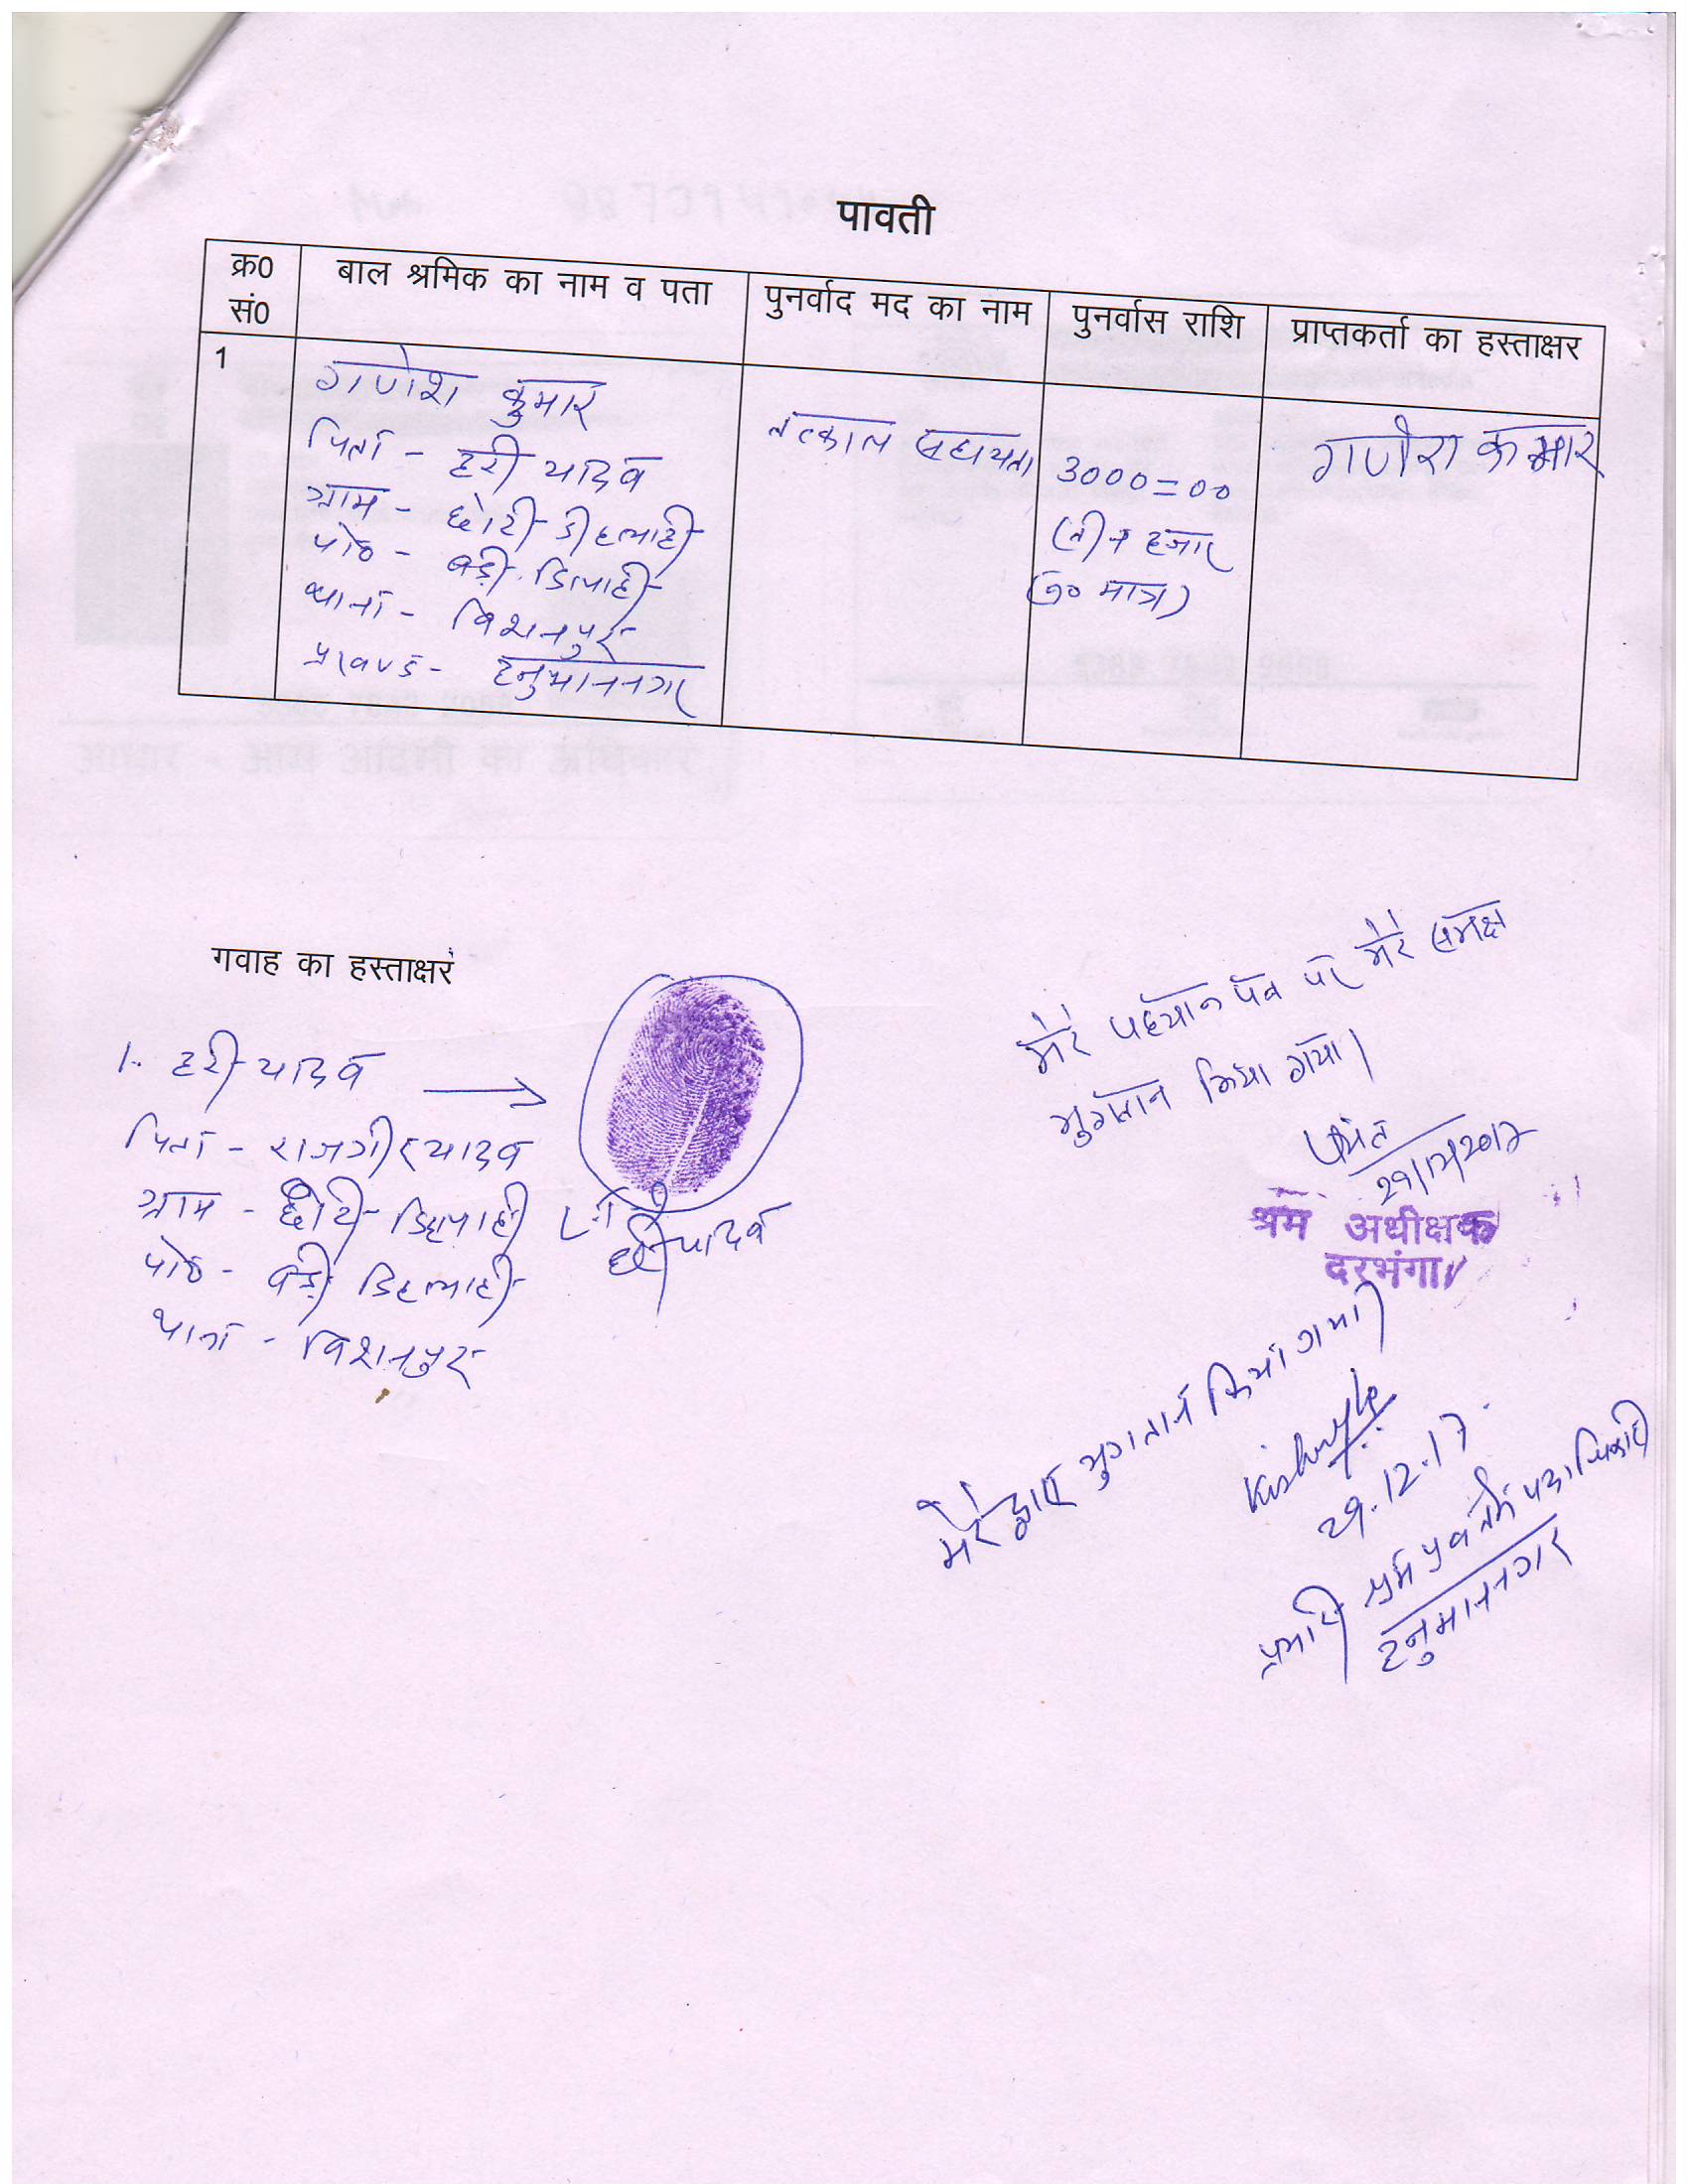 पावती
क्र0 सं0
बाल श्रमिक का नाम व पता
पुनर्वाद मद का नाम
पुनर्वास राशि
प्राप्तकर्ता का हस्ताक्षर
1
गणेश कुमार
पिता - हरी यादव
ग्राम - छोटी डीहलाही
पो० - बड़ी डिलाही
थाना - विशनपुर
प्रखण्ड - हनुमाननगर
तत्काल सहायता
3000=00
(तीन हजार
रू० मात्र)
गणेश कुमार
गवाह का हस्ताक्षर
1. हरी यादव
पिता - राजगीर यादव
ग्राम - छोटी डिहलाही
पो० - बड़ी डिहलाही
थाना - विशनपुर
हरी यादव
मेरे पहचान पर मेरे समक्ष
भुगतान किया गया।
29/12/2017
श्रम अधीक्षक
दरभंगा
मेरे द्वारा भुगतान किया गया।
29.12.17
प्रभारी श्रम प्रवर्तन पदाधिकारी
हनुमाननगर